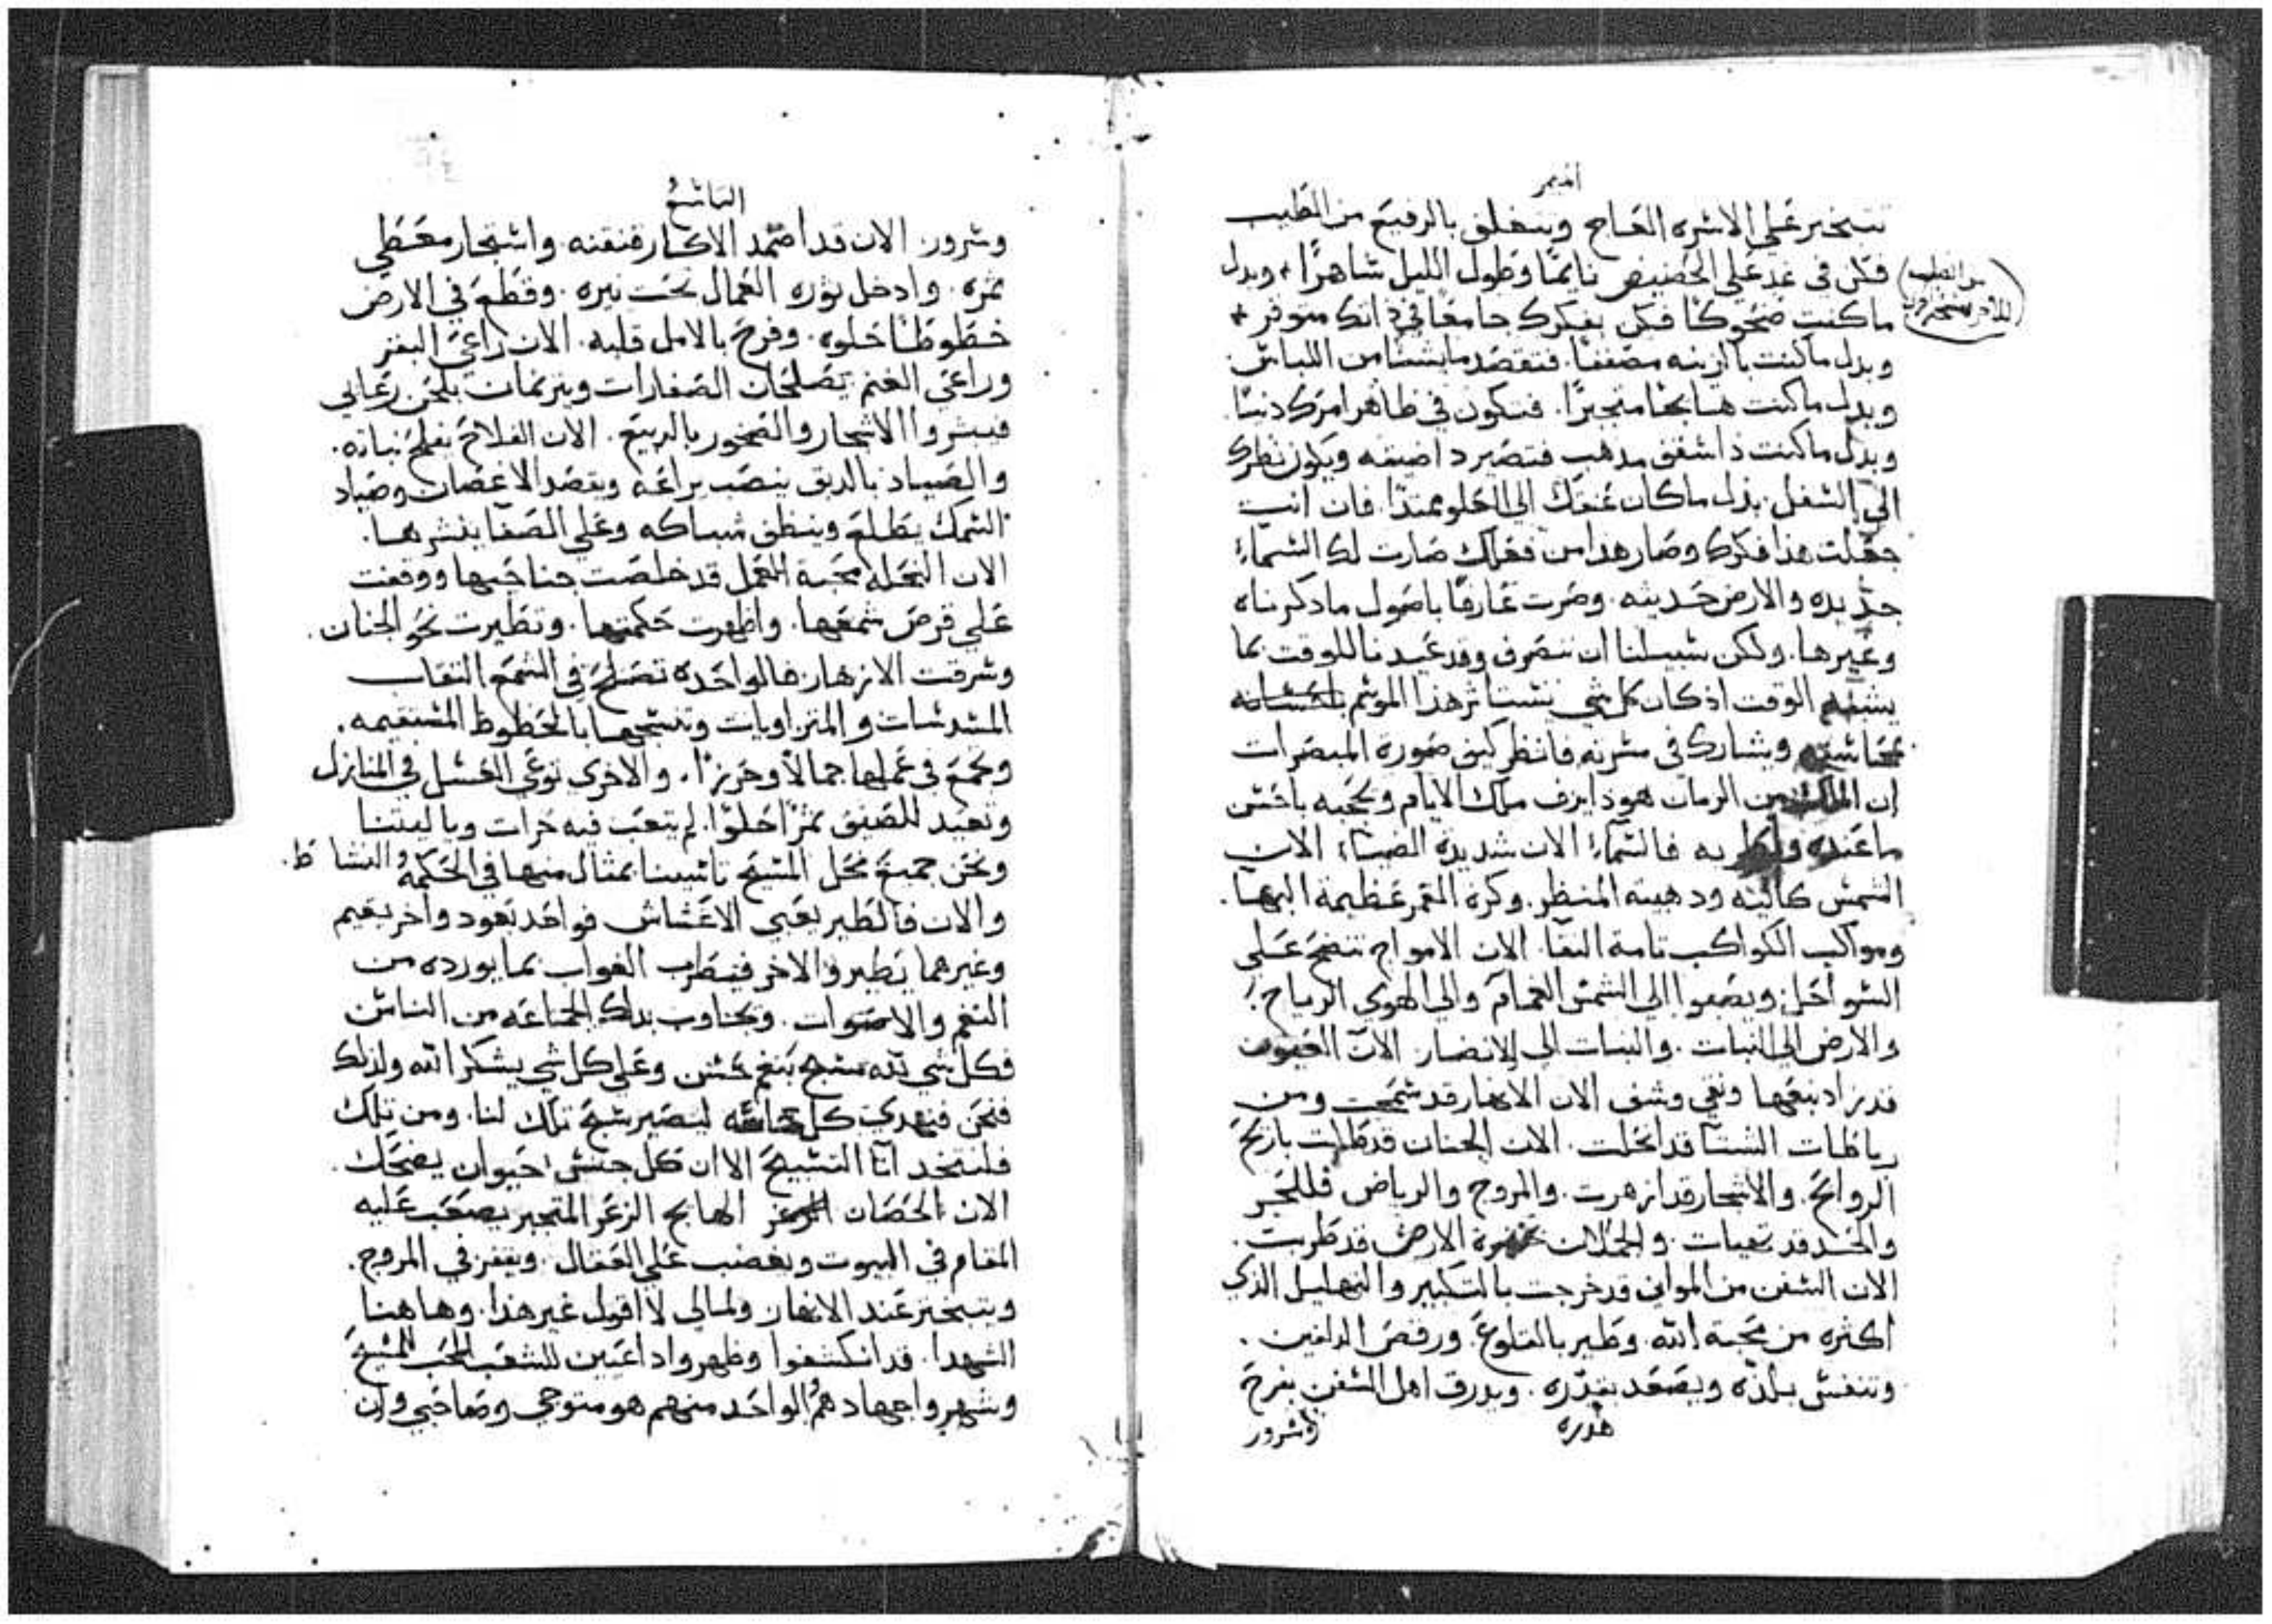 الميمر
تتبختر على الاسره العاج وبتغلق بالرفيع من الطيب
فكن في غد على الحضيض نايمًا وطول الليل ساهرًا * وبدل
ما كنت ضحوكًا فكن بفكرك جامعًا في ذاتك متوفر *
وبدل ما كنت بالزينه فتقصد من اللباس
وبدل ما كنت متجبرًا. فتكون في ظاهر امرك دنيًا.
وبدل ما كنت ذا سقف مذهب فتصير ذا ضيقه ويكون نظرك
الى السفل بدل ما كان عنقك الى العلو ممتدًا. فان انت
جعلت هذا فكرك وصار هذا من فعلك صارت لك السماء
جديده والارض حديثه. وصرت عارفًا باصول ما ذكرناه
وغيرها. ولكن سبيلنا ان ننصرف وقد عيدنا للوقت بما
يشبه الوقت اذ كان كل شي هذا الموسم
ويشارك في مسرته فانظر كيف صورة المبصرات
ان من الزمان هوذا يزف ملك الايام ويحبه باحسن
ما عنده به فالسماء الان شديدة الضياء الان
الشمس عاليه وذهبية المنظر. وكرة القمر عظيمة البها.
ومواكب الكواكب تامة النقا. الان الامواج تنضح على
السواحل. ويصفوا الى الشمس الغمام والى الهوى الرياح
والارض الى النبات. والنبات الى الابصار. الان العيون
قد زاد نبعها ونقي وشف الان الانهار قد سمحت ومن
رباطات الشتا قد انحلت. الان الجنان قد بازكى
الروائح. والاشجار قد ازهرت. والمروج والرياض فللجز
والحصد قد تهيات. والحملان الارض قد طربت.
الان السفن من الموانى قد خرجت بالتكبير والتهليل الذي
اكثره من محبة الله. وطير بالقلوع. ورقص الدلفين.
وتنفس بلذه ويصعد بقدره. وبدرق اهل السفن بفرح
هدره
وسرور
التاسع
وسرور. الان قد اصمد الاكار واشجار معطي
ثمره. وادخل ثوره العمال تحت نيره. وقطع في الارض
خطوطًا حلوه. وفرح بالامل قلبه. الان راعي البقر
وراعي الغنم يصلحان الصفارات ويترنمان بلحن رعايي
فبشروا الاشجار والصخور بالربيع. الان الفلاح يفلح نباته.
والصياد بالدبق ينصب يراعه ويقصد الاغصان وصياد
السمك يطلع وينظف شباكه وعلى الصفا ينشرها.
الان النحله محبة العمل قد خلصت جناحيها ووقعت
على قرص شمعها. واظهرت حكمتها. وتطيرت نحو الجنان.
وسرقت الازهار فالواحده تصلح في الشمع النقاب
المسدسات والمتزاويات وتنسجها بالخطوط المستقيمه.
وتجمع في عملها جمالاً وحرزًا. والاخرى توعي العسل في المنازل
وتعيد للضيف ثمرًا حلوًا. لم يتعب فيه حراث ويا ليتنا
ونحن جميع نحل المسيح ناسينا بمثال منها في الحكمه والنشاط.
والان فالطير يعبي الاعشاش فواحد يعود واخر يقيم
وغيرهما يطير والاخر فيطرب الغواب بما يورده من
النغم والاصوات. وتجاوب بذلك الجماعه من الناس
فكل شي لله مسبح بنغم حسن وعلى كل شي يشكر الله ولذلك
فنحن فنهدي كل ليصير سبح تلك لنا. ومن تلك
فلنتخذ انا التسبيح الان كل جنس حيوان يضحك.
الان الحصان الهايج الزعر المتجبر يصعب عليه
المقام في البيوت ويغضب على العقال. ويقفز في المروج.
ويتبختر عند الانهار ولمالي لا اقول غير هذا. وهاهنا
الشهدا. قد انكشفوا وظهروا داعيين للشعب المحب المسيح
وشهروا جهادهم الواحد منهم هو متوجي وصاحبي وان